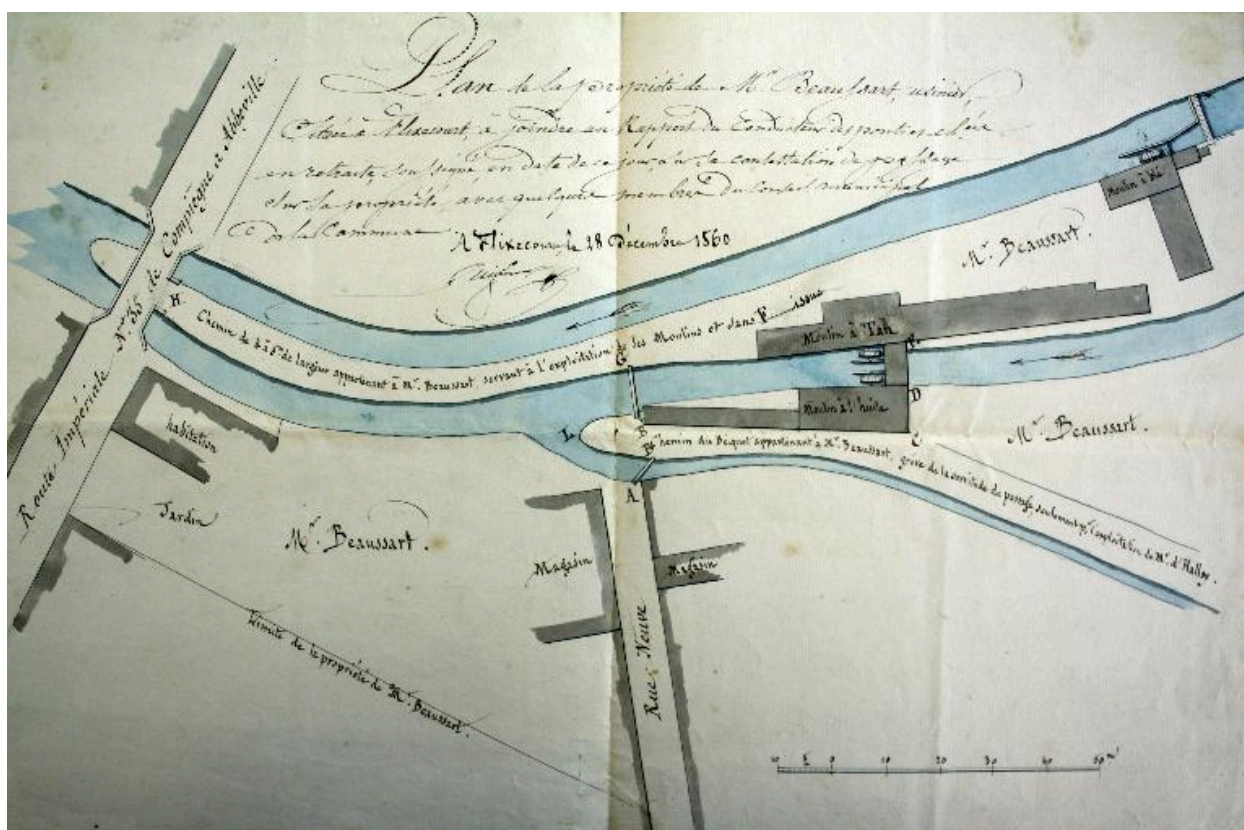 Plan de la propriété de Mr. Beaussart, usinier,
située à Flixecourt, à joindre au Rapport du Conducteur des ponts et ch.ées
en retraite, soussigné, en date de ce jour, sur la contestation de passage
sur sa propriété, avec quelques membres du Conseil municipal
de la Commune
A Flixecourt, le 28 Décembre 1860
Route Impériale Nº 35 de Compiègne à Abbeville
H.
Chemin de 4 à 5m de largeur appartenant à Mr. Beaussart, servant à l'exploitation de ses Moulins et sans issue
Moulin à blé
Mr. Beaussart.
Moulin à Tan
G
D
Moulin à l'huile
C
B
L
A
Chemin du Becquet appartenant à Mr. Beaussart, grévé de la servitude de passage, seulement pr. l'exploitation de Mr. d'Halloy.
Mr. Beaussart.
habitation
Jardin
Mr. Beaussart.
Magasin
Magasin
Rue Neuve
Limite de la propriété de Mr. Beaussart.
10 5 0 10 20 30 40 50 m